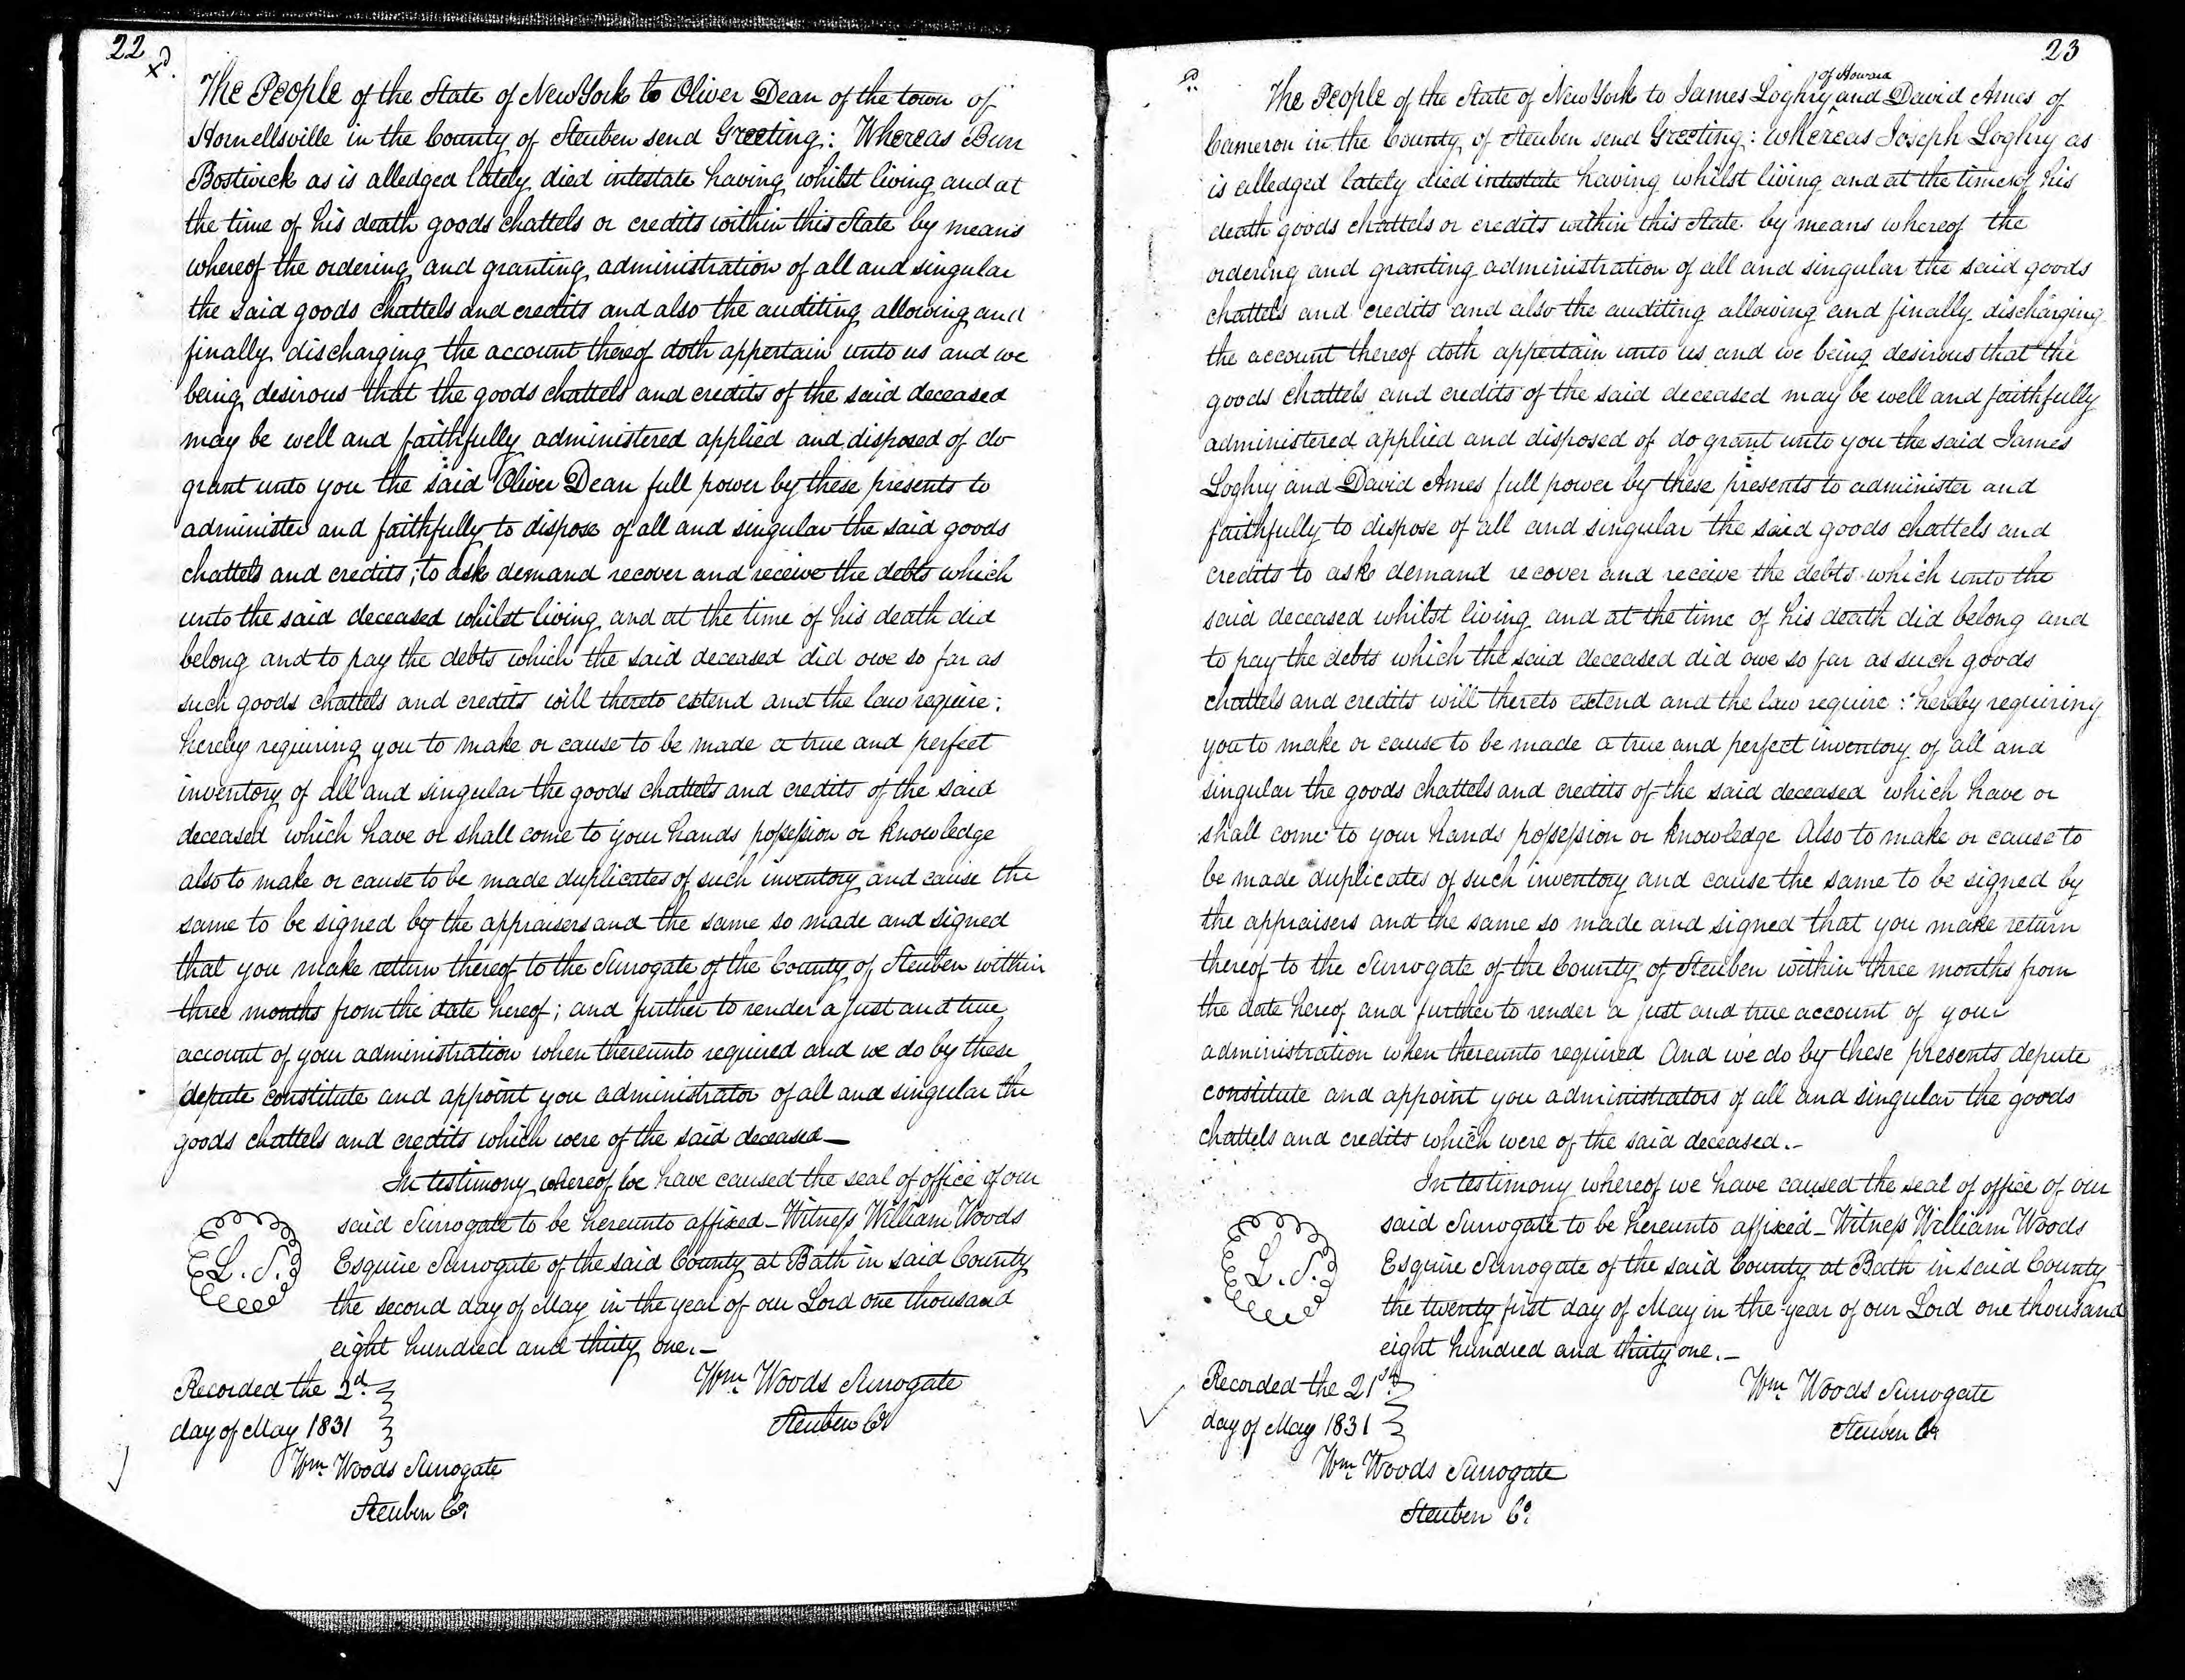 22
The People of the State of New York to Oliver Dean of the town of
Hornellsville in the County of Steuben send Greeting: Whereas Burr
Bostwick as is alledged lately died intestate having whilst living and at
the time of his death goods chattels or credits within this State by means
whereof the ordering and granting administration of all and singular
the said goods chattels and credits and also the auditing allowing and
finally discharging the account thereof doth appertain unto us and we
being desirous that the goods chattels and credits of the said deceased
may be well and faithfully administered applied and disposed of do
grant unto you the said Oliver Dean full power by these presents to
administer and faithfully to dispose of all and singular the said goods
chattels and credits; to ask demand recover and receive the debts which
unto the said deceased whilst living and at the time of his death did
belong and to pay the debts which the said deceased did owe so far as
such goods chattels and credits will thereto extend and the law require;
hereby requiring you to make or cause to be made a true and perfect
inventory of all and singular the goods chattels and credits of the said
deceased which have or shall come to your hands possession or knowledge
also to make or cause to be made duplicates of such inventory and cause the
same to be signed by the appraisers and the same so made and signed
that you make return thereof to the Surrogate of the County of Steuben within
three months from the date hereof; and further to render a just and true
account of your administration when thereunto required and we do by these
depute constitute and appoint you administrator of all and singular the
goods chattels and credits which were of the said deceased—
In testimony whereof we have caused the seal of office of our
said Surrogate to be hereunto affixed – Witness William Woods
L.S. Esquire Surrogate of the said County at Bath in said County
the second day of May in the year of our Lord one thousand
eight hundred and thirty one.–
Recorded the 2d.
day of May 1831
Wm Woods Surrogate
Steuben Co.
Wm Woods Surrogate
Steuben Co.
23
The People of the State of New York to James Loghry of Howard and David Ames of
Cameron in the County of Steuben send Greeting: whereas Joseph Loghry as
is alledged lately died intestate having whilst living and at the time of his
death goods chattels or credits within this State by means whereof the
ordering and granting administration of all and singular the said goods
chattels and credits and also the auditing allowing and finally discharging
the account thereof doth appertain unto us and we being desirous that the
goods chattels and credits of the said deceased may be well and faithfully
administered applied and disposed of do grant unto you the said James
Loghry and David Ames full power by these presents to administer and
faithfully to dispose of all and singular the said goods chattels and
credits to ask demand recover and receive the debts which unto the
said deceased whilst living and at the time of his death did belong and
to pay the debts which the said deceased did owe so far as such goods
chattels and credits will thereto extend and the law require: hereby requiring
you to make or cause to be made a true and perfect inventory of all and
singular the goods chattels and credits of the said deceased which have or
shall come to your hands possession or knowledge Also to make or cause to
be made duplicates of such inventory and cause the same to be signed by
the appraisers and the same so made and signed that you make return
thereof to the Surrogate of the County of Steuben within three months from
the date hereof and further to render a just and true account of your
administration when thereunto required And we do by these presents depute
constitute and appoint you administrators of all and singular the goods
chattels and credits which were of the said deceased.–
In testimony whereof we have caused the seal of office of our
said Surrogate to be hereunto affixed – Witness William Woods
L.S. Esquire Surrogate of the said County at Bath in said County
the twenty first day of May in the year of our Lord one thousand
eight hundred and thirty one.–
Recorded the 21st
day of May 1831
Wm Woods Surrogate
Steuben Co.
Wm Woods Surrogate
Steuben Co.